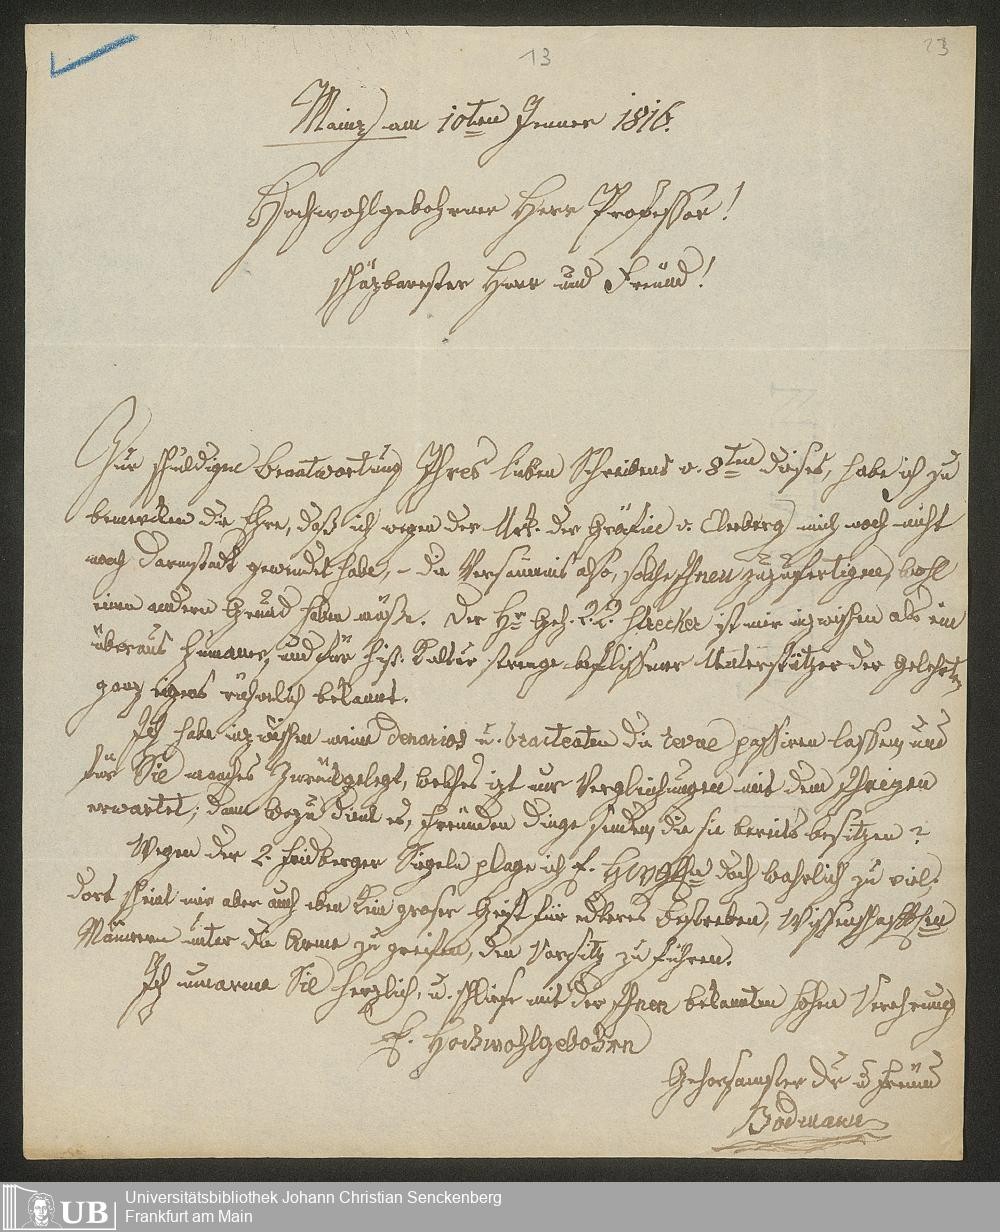 13
23
Mainz am 10ten Jenner 1816.
Hochwohlgebohrner Herr Professor!
schäzbarester Herr und Freünd!
Zur schuldigen Beantwortung Ihres lieben Schreibens v. 8ten dieses, habe ich zu
bemercken die Ehre, daß ich wegen der Urk. der Gräfin v. Cleeberg mich noch nicht
nach Darmstadt gewendet habe, – die Versäumnis also, solche Ihnen zuzufertigen, wohl
einen andern Grund haben müße. Der Hr Geh. R. Strecker ist mir inzwischen als ein
überaus humaner, und für hist. Kultur strenge beflissener Unterstützer der Gelehrten
ganz eigens rühmlich bekannt.
Ich habe inzwischen meine denarios u. bracteaten die revue passiren lassen, und
für Sie manches zurückgelegt, welches izt nur Vergleichungen mit dem Ihrigen
erwartet; dann wozu dient es, Freunden dinge senden, die sie bereits besitzen?
Wegen der 2. Fridberger Siegeln plage ich E. Hwgb doch wahrlich zu viel.
dort scheint mir aber auch eben kein groser Geist für edleres Bestreben, Wissenschafftlhen
Männern unter die Arme zu greifen, den Vorsitz zu führen.
Ich umarme Sie herzlich, u. schliese mit der Ihnen bekannten hohen Verehrung
E. Hochwohlgebohrn
Gehorsamster Dr u Freund
Bodmann
UB
Universitätsbibliothek Johann Christian Senckenberg
Frankfurt am Main